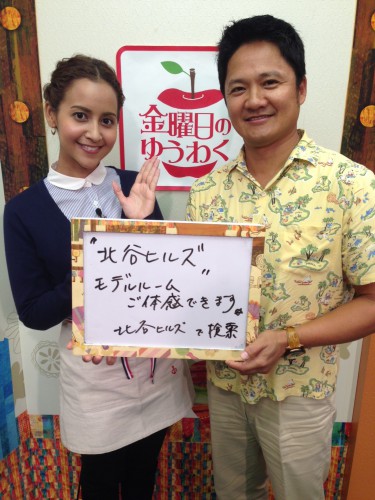 金曜日の
ゆうわく
"北谷ヒルズ"
モデルルーム
ご体感できます。
北谷ヒルズで検索